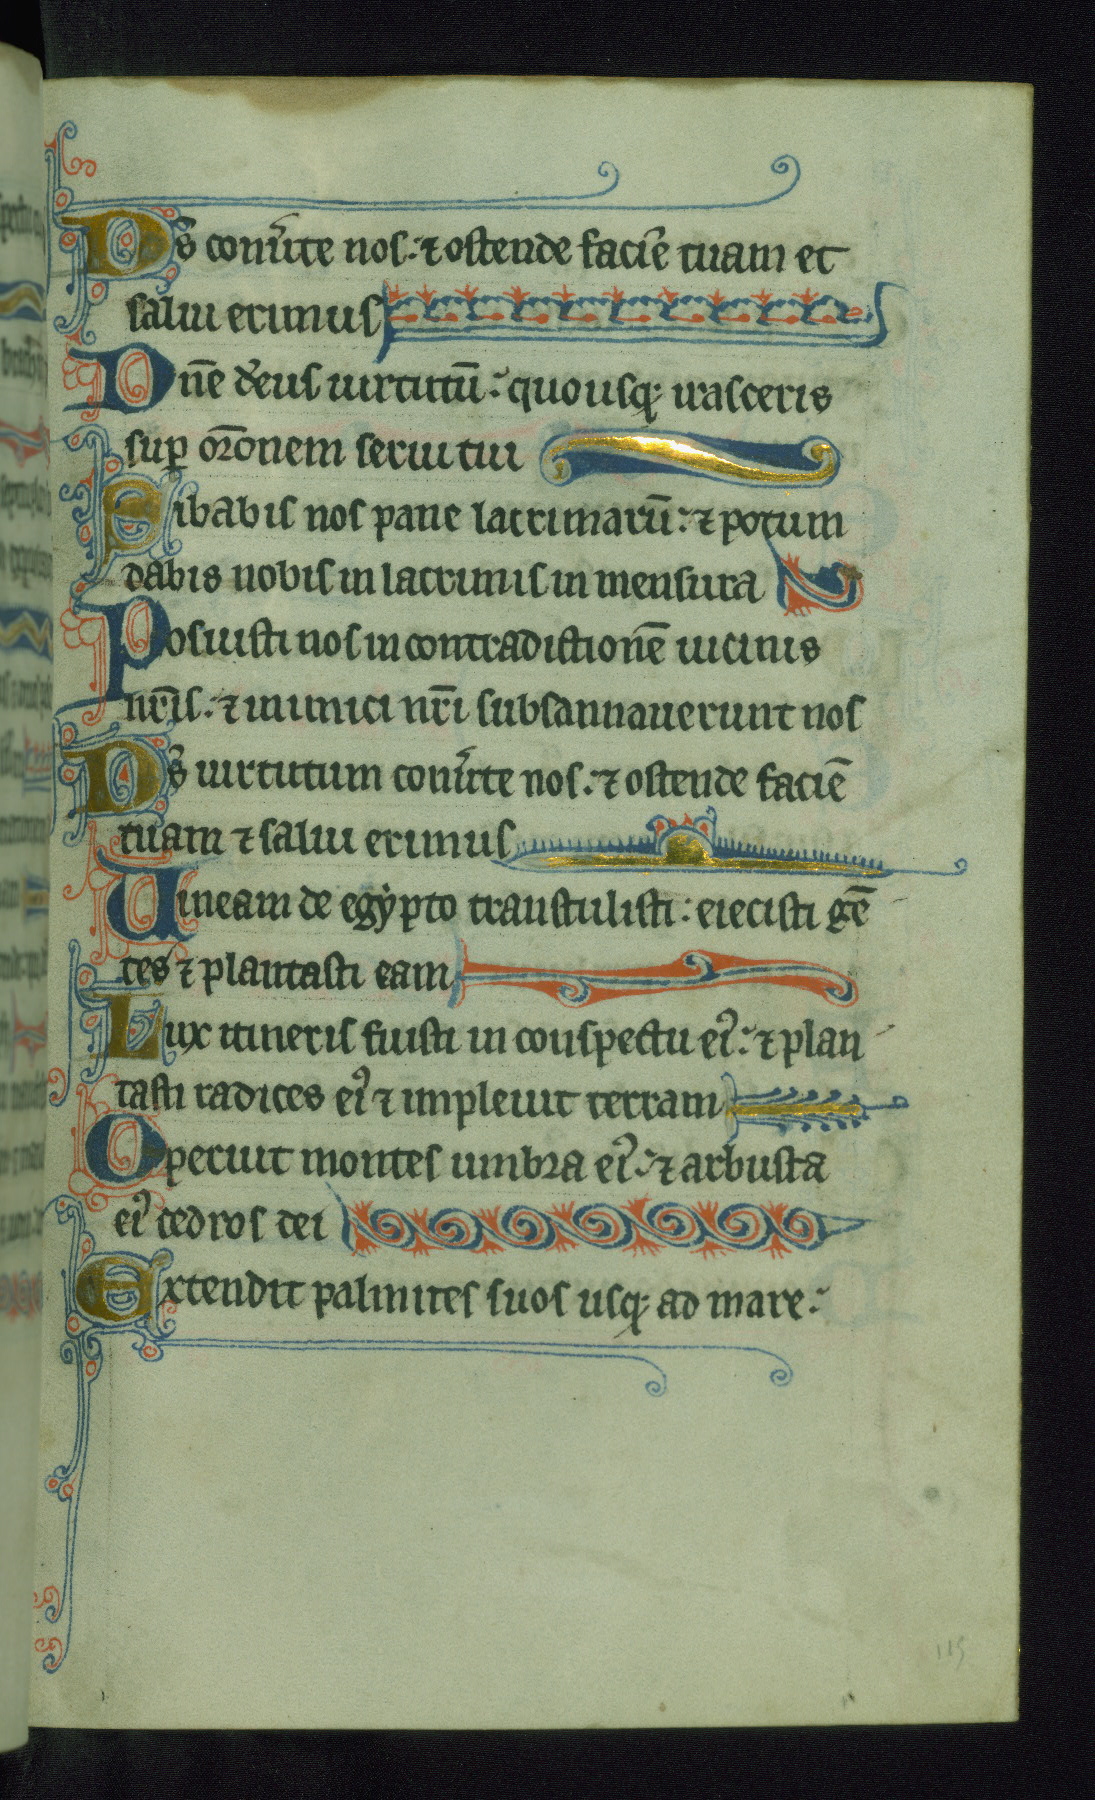 Ds̄ conu̾te nos: ⁊ ostende faciē tuam et
salui erimus
Dn̄e deus uirtutū: quousq; irasceris
sup or̄onem serui tui
Cibabis nos pane lacrimarū: ⁊ potum
dabis nobis in lacrimis in mensura
Posuisti nos in contradictionē uicinis
nr̄is: ⁊ inimici nr̄i subsannauerunt nos
Ds̄ uirtutum conu̾te nos: ⁊ ostende faciē
tuam ⁊ salui erimus
Uineam de egypto transtulisti: eiecisti gē
tes ⁊ plantasti eam
Dux itineris fuisti in conspectu eiꝰ: ⁊ plan
tasti radices eiꝰ ⁊ impleuit terram
Operuit montes umbra eiꝰ: ⁊ arbusta
eiꝰ cedros dei
Extendit palmites suos usq; ad mare:
115